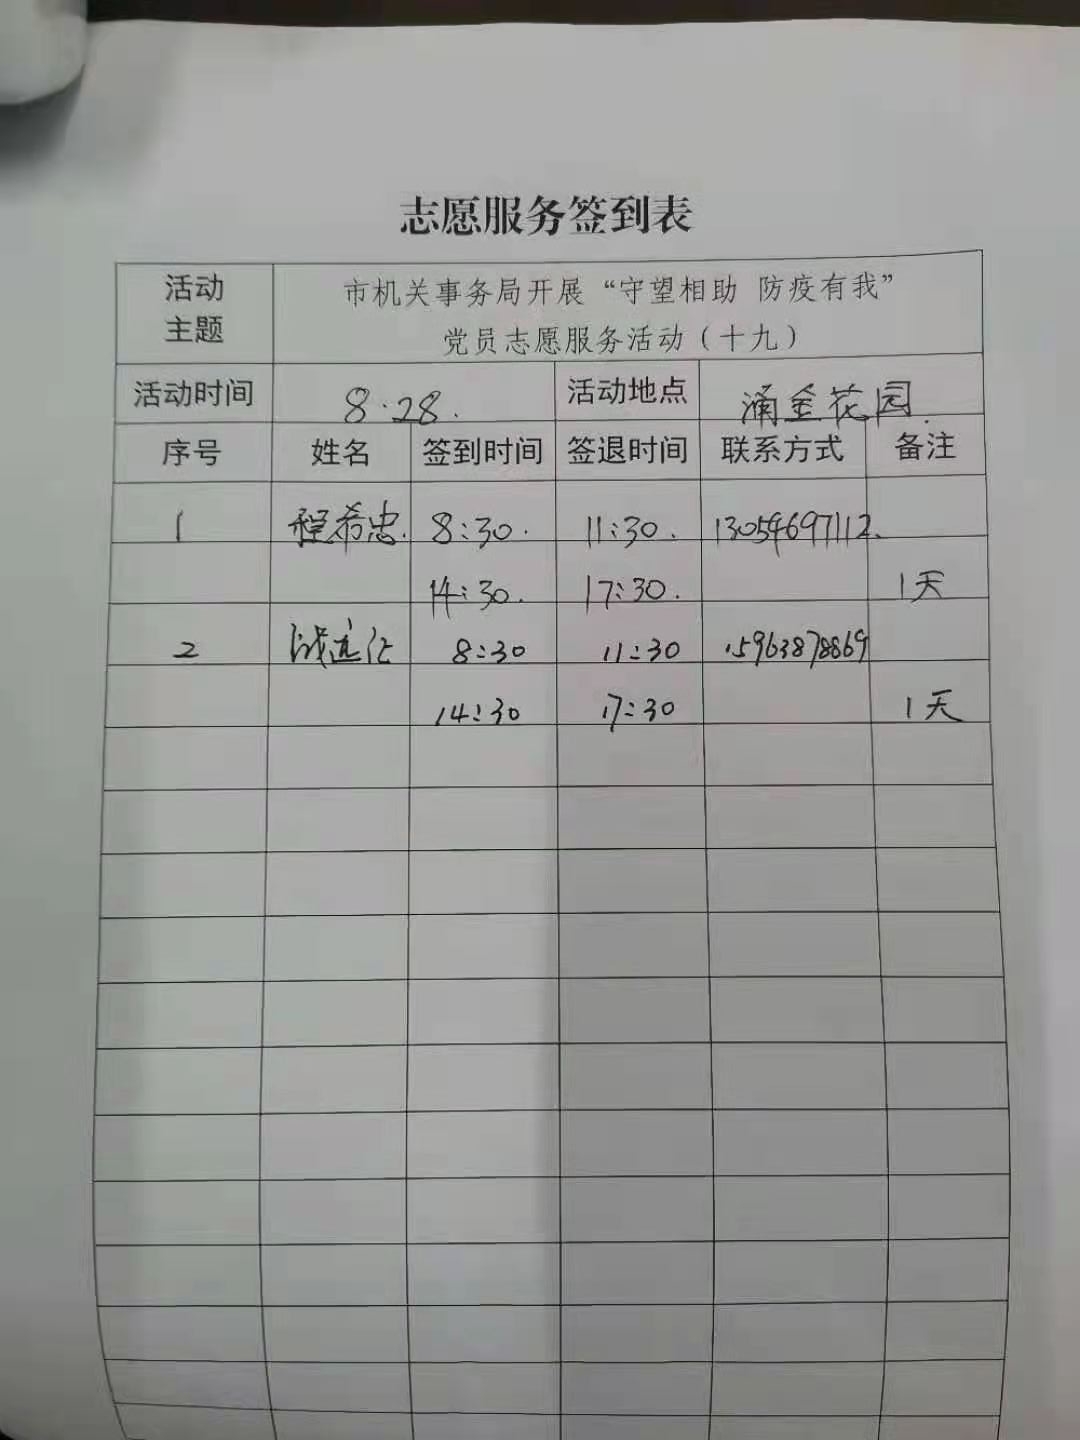 志愿服务签到表
活动主题 市机关事务局开展“守望相助 防疫有我”
党员志愿服务活动（十九）
活动时间 8.28. 活动地点 涌金花园.
序号 姓名 签到时间 签退时间 联系方式 备注
1 程希忠. 8:30. 11:30. 13054697112.
14:30. 17:30. 1天
2 8:30 11:30 15963878869
14:30 17:30 1天